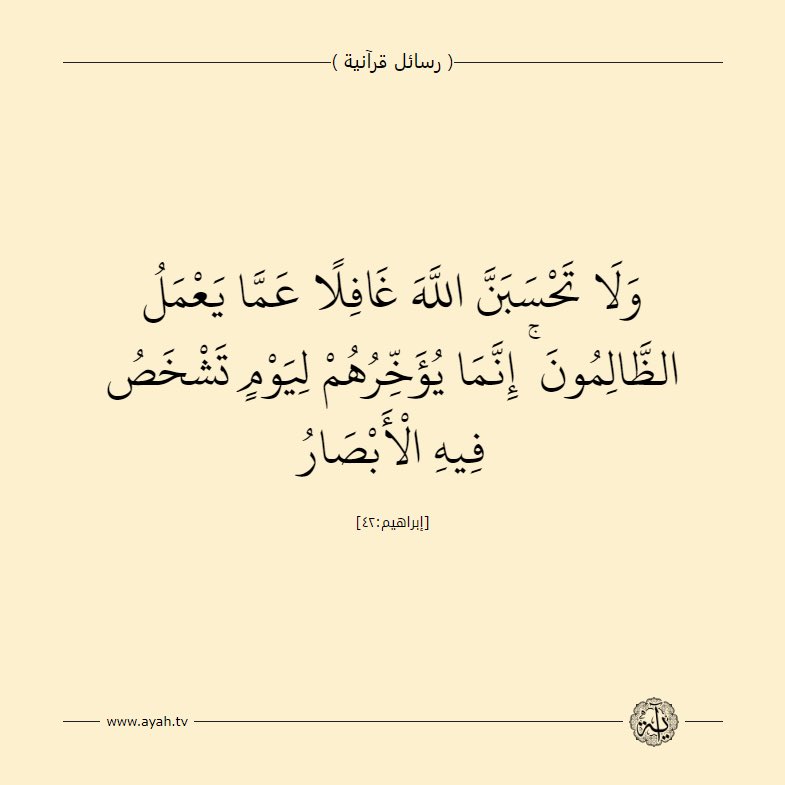 ( رسائل قرآنية )
وَلَا تَحْسَبَنَّ اللَّهَ غَافِلًا عَمَّا يَعْمَلُ
الظَّالِمُونَ ۚ إِنَّمَا يُؤَخِّرُهُمْ لِيَوْمٍ تَشْخَصُ
فِيهِ الْأَبْصَارُ
[إبراهيم:٤٢]
www.ayah.tv
آية